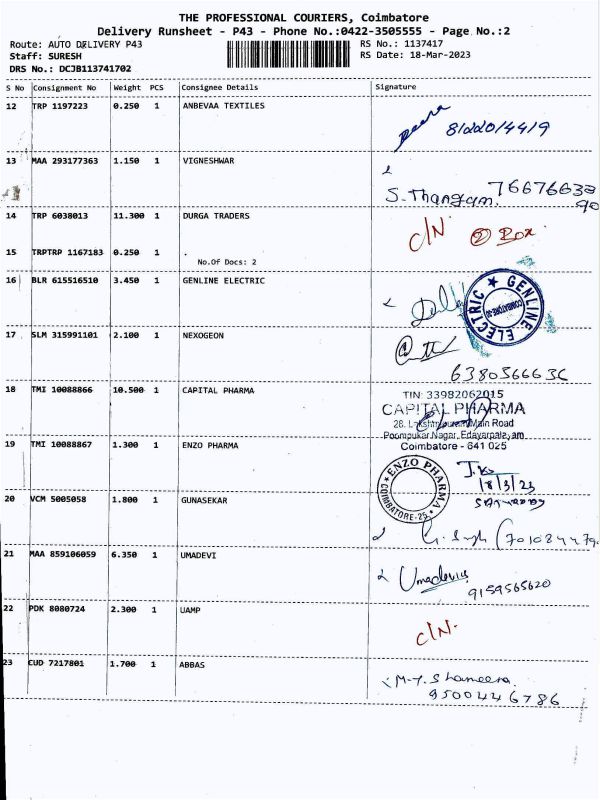 THE PROFESSIONAL COURIERS, Coimbatore
Delivery Runsheet - P43 - Phone No.:0422-3505555 - Page No.:2
Route: AUTO DELIVERY P43 RS No.: 1137417
Staff: SURESH RS Date: 18-Mar-2023
DRS No.: DCJB113741702
S No Consignment No Weight PCS Consignee Details Signature
12 TRP 1197223 0.250 1 ANBEVAA TEXTILES
8122014419
13 MAA 293177363 1.150 1 VIGNESHWAR
S. Thangam. 76676632
90
14 TRP 6038013 11.300 1 DURGA TRADERS
C/N. ② Box
15 TRPTRP 1167183 0.250 1 .
No.Of Docs: 2
16 BLR 615516510 3.450 1 GENLINE ELECTRIC
GENLINE ELECTRIC
17 SLM 315991101 2.100 1 NEXOGEON
638036663
18 TMI 10088866 10.500 1 CAPITAL PHARMA
TIN: 33982062015
CAPITAL PHARMA
Main Road
Poompukar Nagar, Edayarpalayam
Coimbatore - 641 025
19 TMI 10088867 1.300 1 ENZO PHARMA
ENZO PHARMA COIMBATORE-25.
18/3/23
20 VCM 5005058 1.800 1 GUNASEKAR
21 MAA 859106059 6.350 1 UMADEVI
Umadevi
9159565620
22 PDK 8080724 2.300 1 UAMP
C/N.
23 CUD 7217801 1.700 1 ABBAS
M.Y. Shameera
9500446786